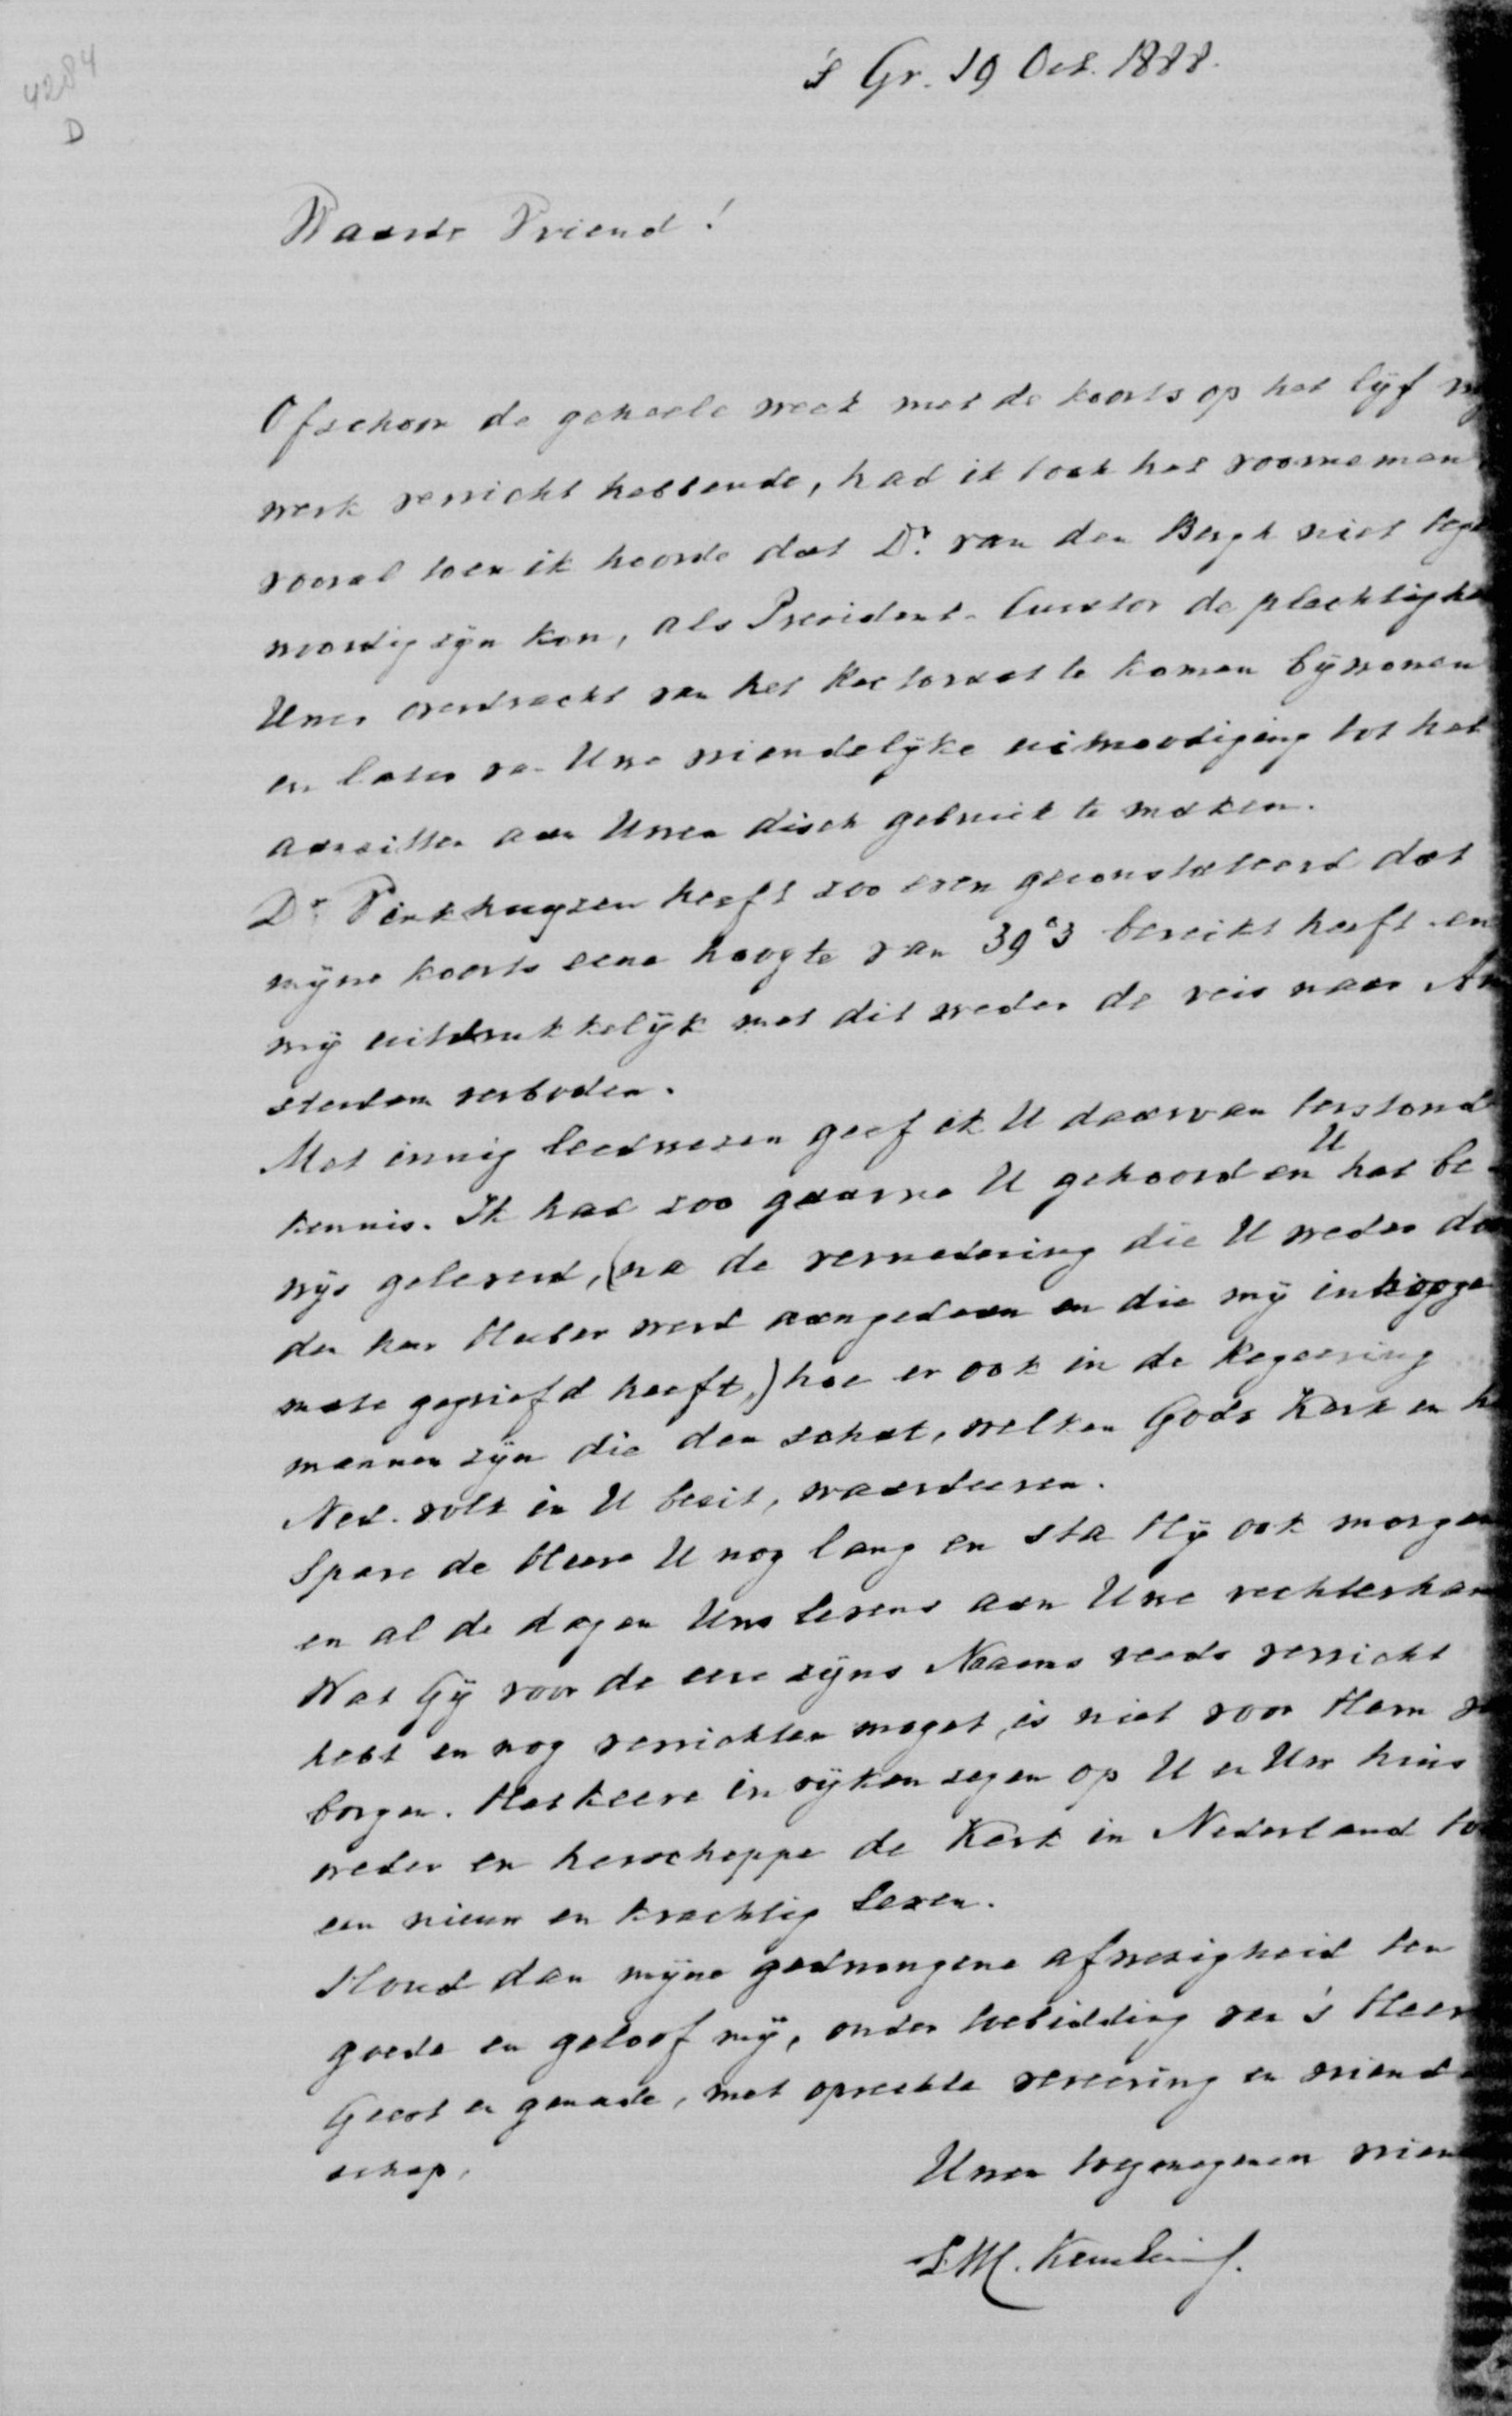 4284
D
's Gr. 19 Oct. 1888.
Waarde Vriend!
Ofschoon de geheele week met de koorts op het lijf
werk verricht hebbende, had ik toch het voornemen
vooral toen ik hoorde dat Dr. van den Bergh niet tege
woordig zijn kon, als President-Curator de plechtighe
Uwer overdracht van het Rectoraat te komen bijwonen
en later va Uwe vriendelijke uitnoodiging tot het
aanzitten aan Uwen disch gebruik te maken.
Dr. Pinkhuyzen heeft zoo even geconstateerd dat
mijne koorts eene hoogte van 39°3 bereikt heeft en
mij uitdrukkelijk met dit weder de reis naar Am
sterdam verboden.
Met innig leedwezen geef ik U daarvan terstond
kennis. Ik had zoo gaarne U gehoord en U het be-
wijs geleverd, (na de vernedering die U weder do
den heer Huber werd aangedaan en die mij in hooge
mate gegriefd heeft,) hoe er ook in de Regeering
mannen zijn die den schat, welken Gods Kerk en h
Ned. volk in U bezit, waardeeren.
Spare de Heere U nog lang en sta Hij ook morgen
en al de dagen Uws levens aan Uwe rechterhan
Wat Gij voor de eere zijns Naams reeds verricht
hebt en nog verrichten moget, is niet voor Hem ve
borgen. Het keere in rijken zegen op U en Uw huis
weder en herscheppe de Kerk in Nederland to
een nieuw en krachtig leven.
Houd dan mijne gedwongene afwezigheid ten
goede en geloof mij, onder toebidding van 's Heer
Geest en genade, met oprechte vereering en vriend-
schap,
Uwen toegenegenen vrien